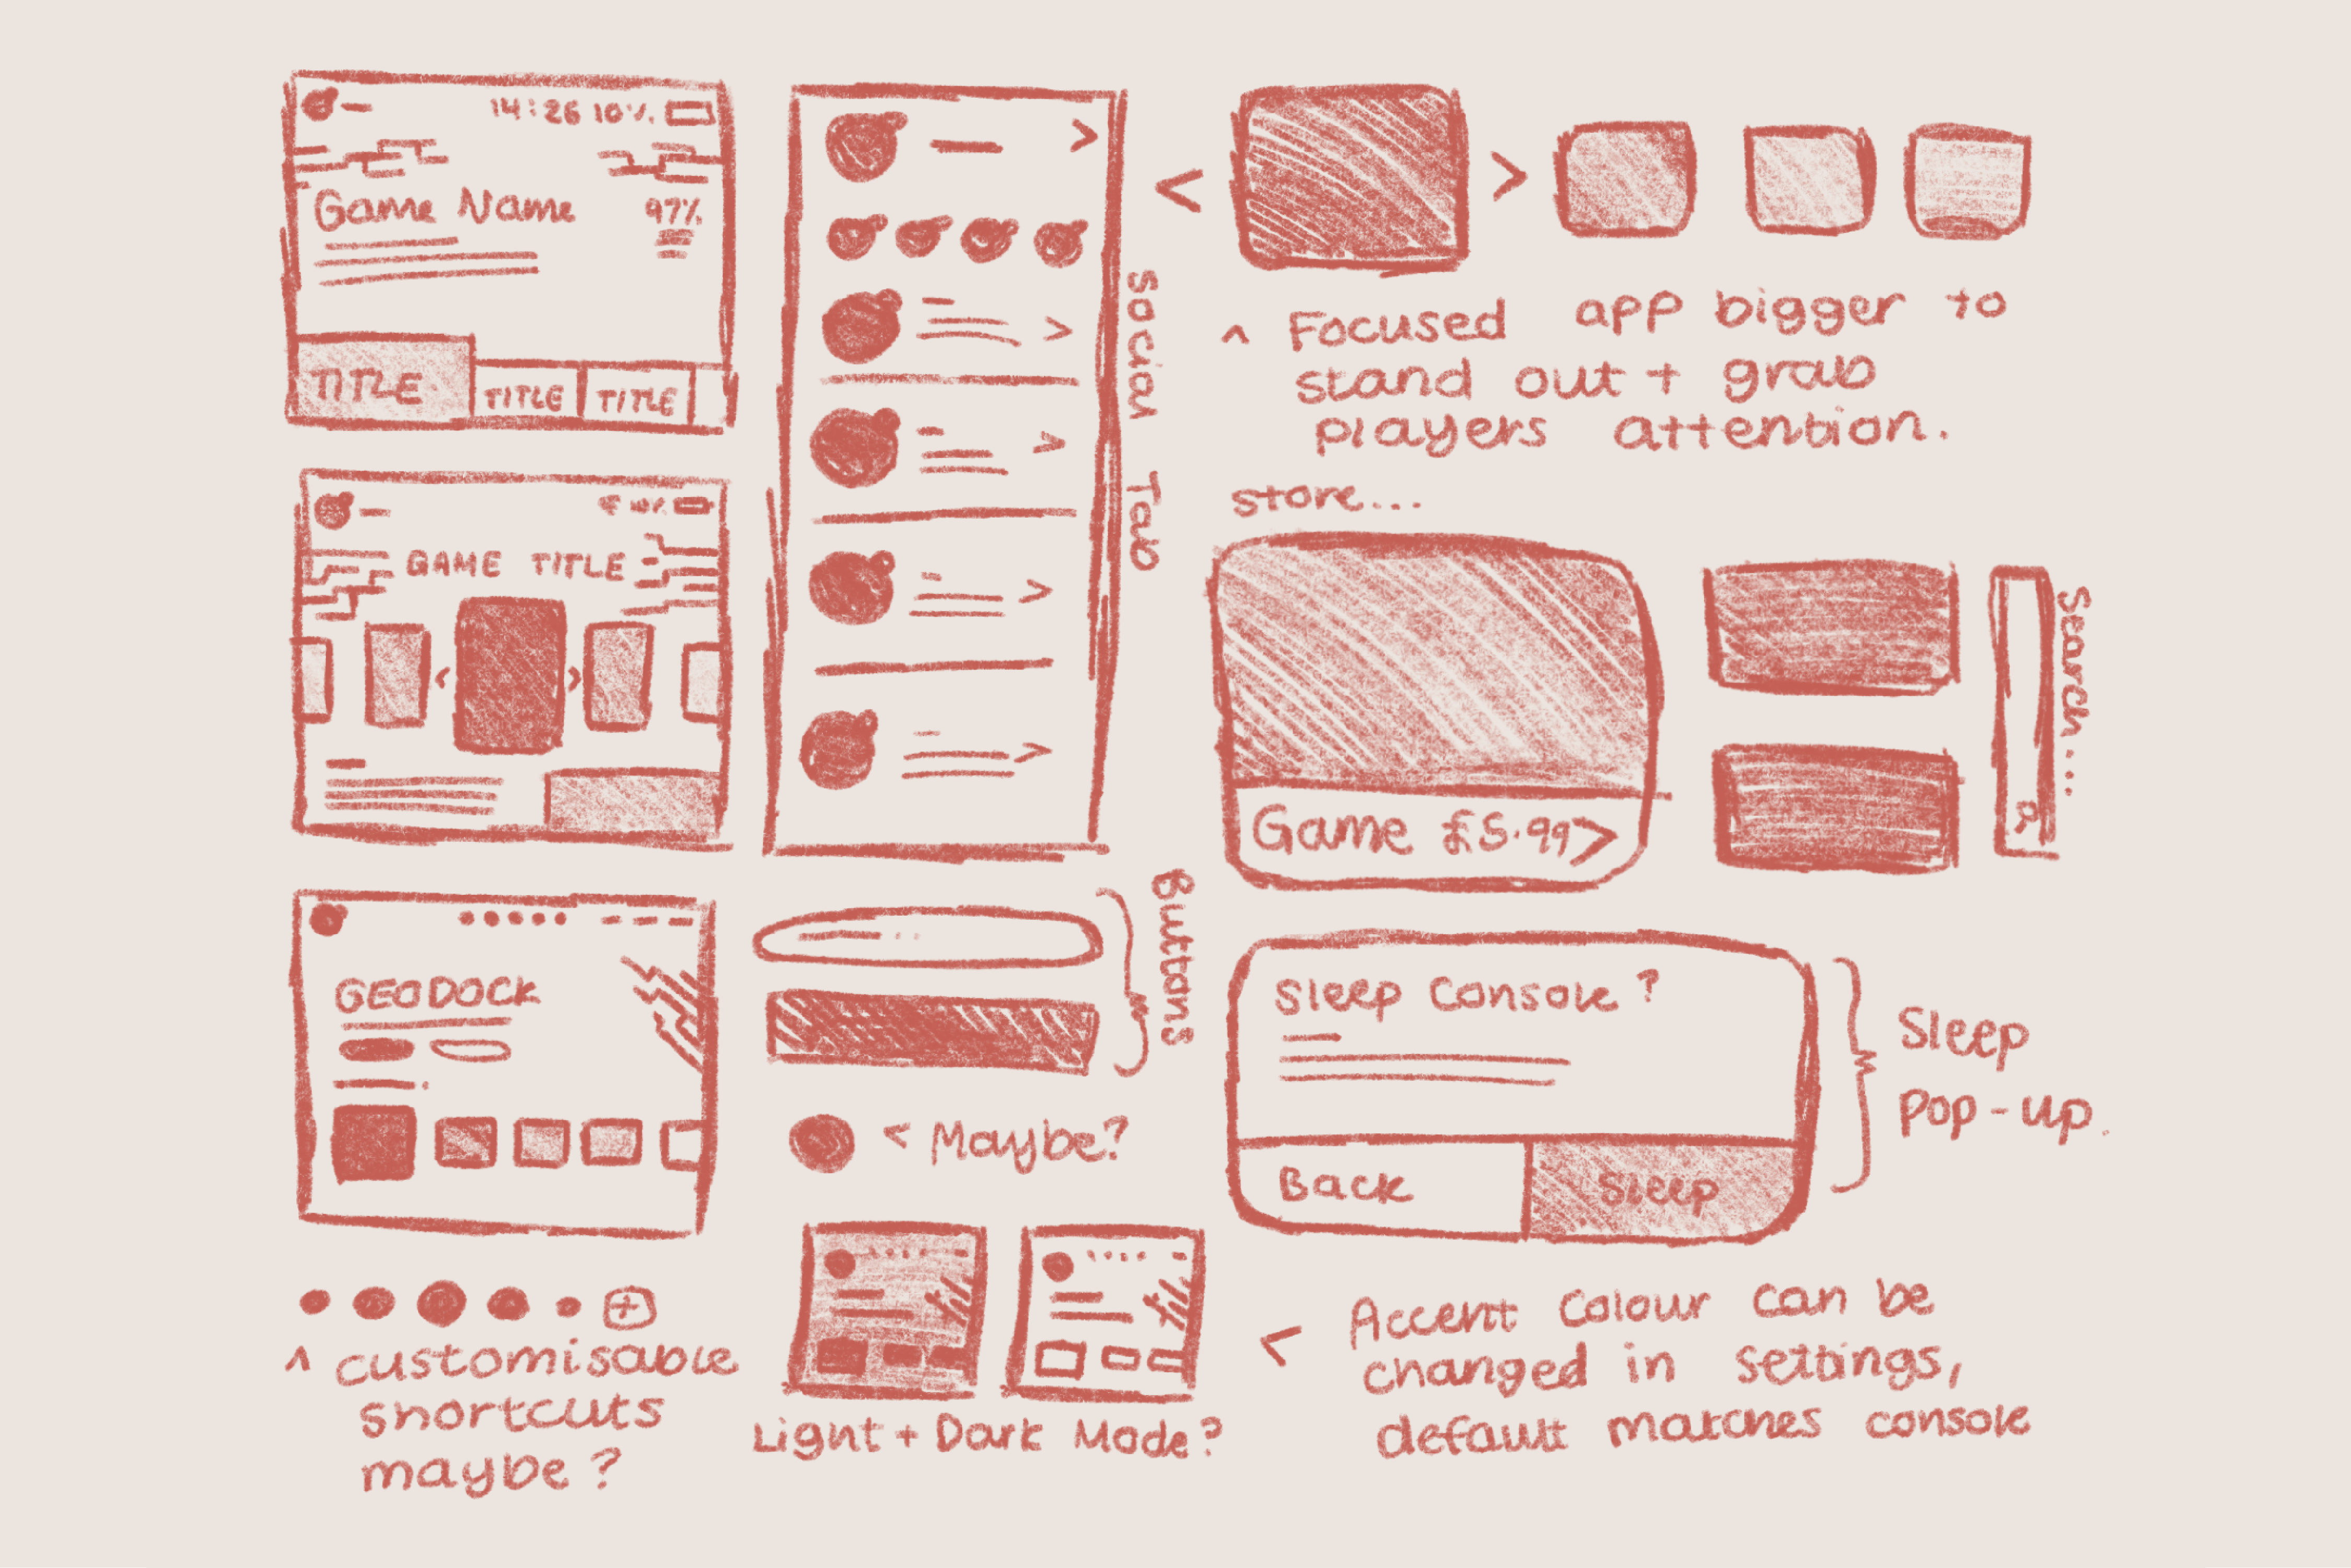 14:26 10%
Game Name
97%
TITLE
TITLE
TITLE
10%
GAME TITLE
GEODOCK
^ customisable
shortcuts
maybe?
Social Tab
Buttons
< Maybe?
Light + Dark Mode?
< >
^ Focused app bigger to
stand out + grab
players attention.
store...
Game £5.99>
Search...
Sleep Console?
Back
Sleep
Sleep
Pop-up.
< Accent Colour can be
changed in settings,
default matches console